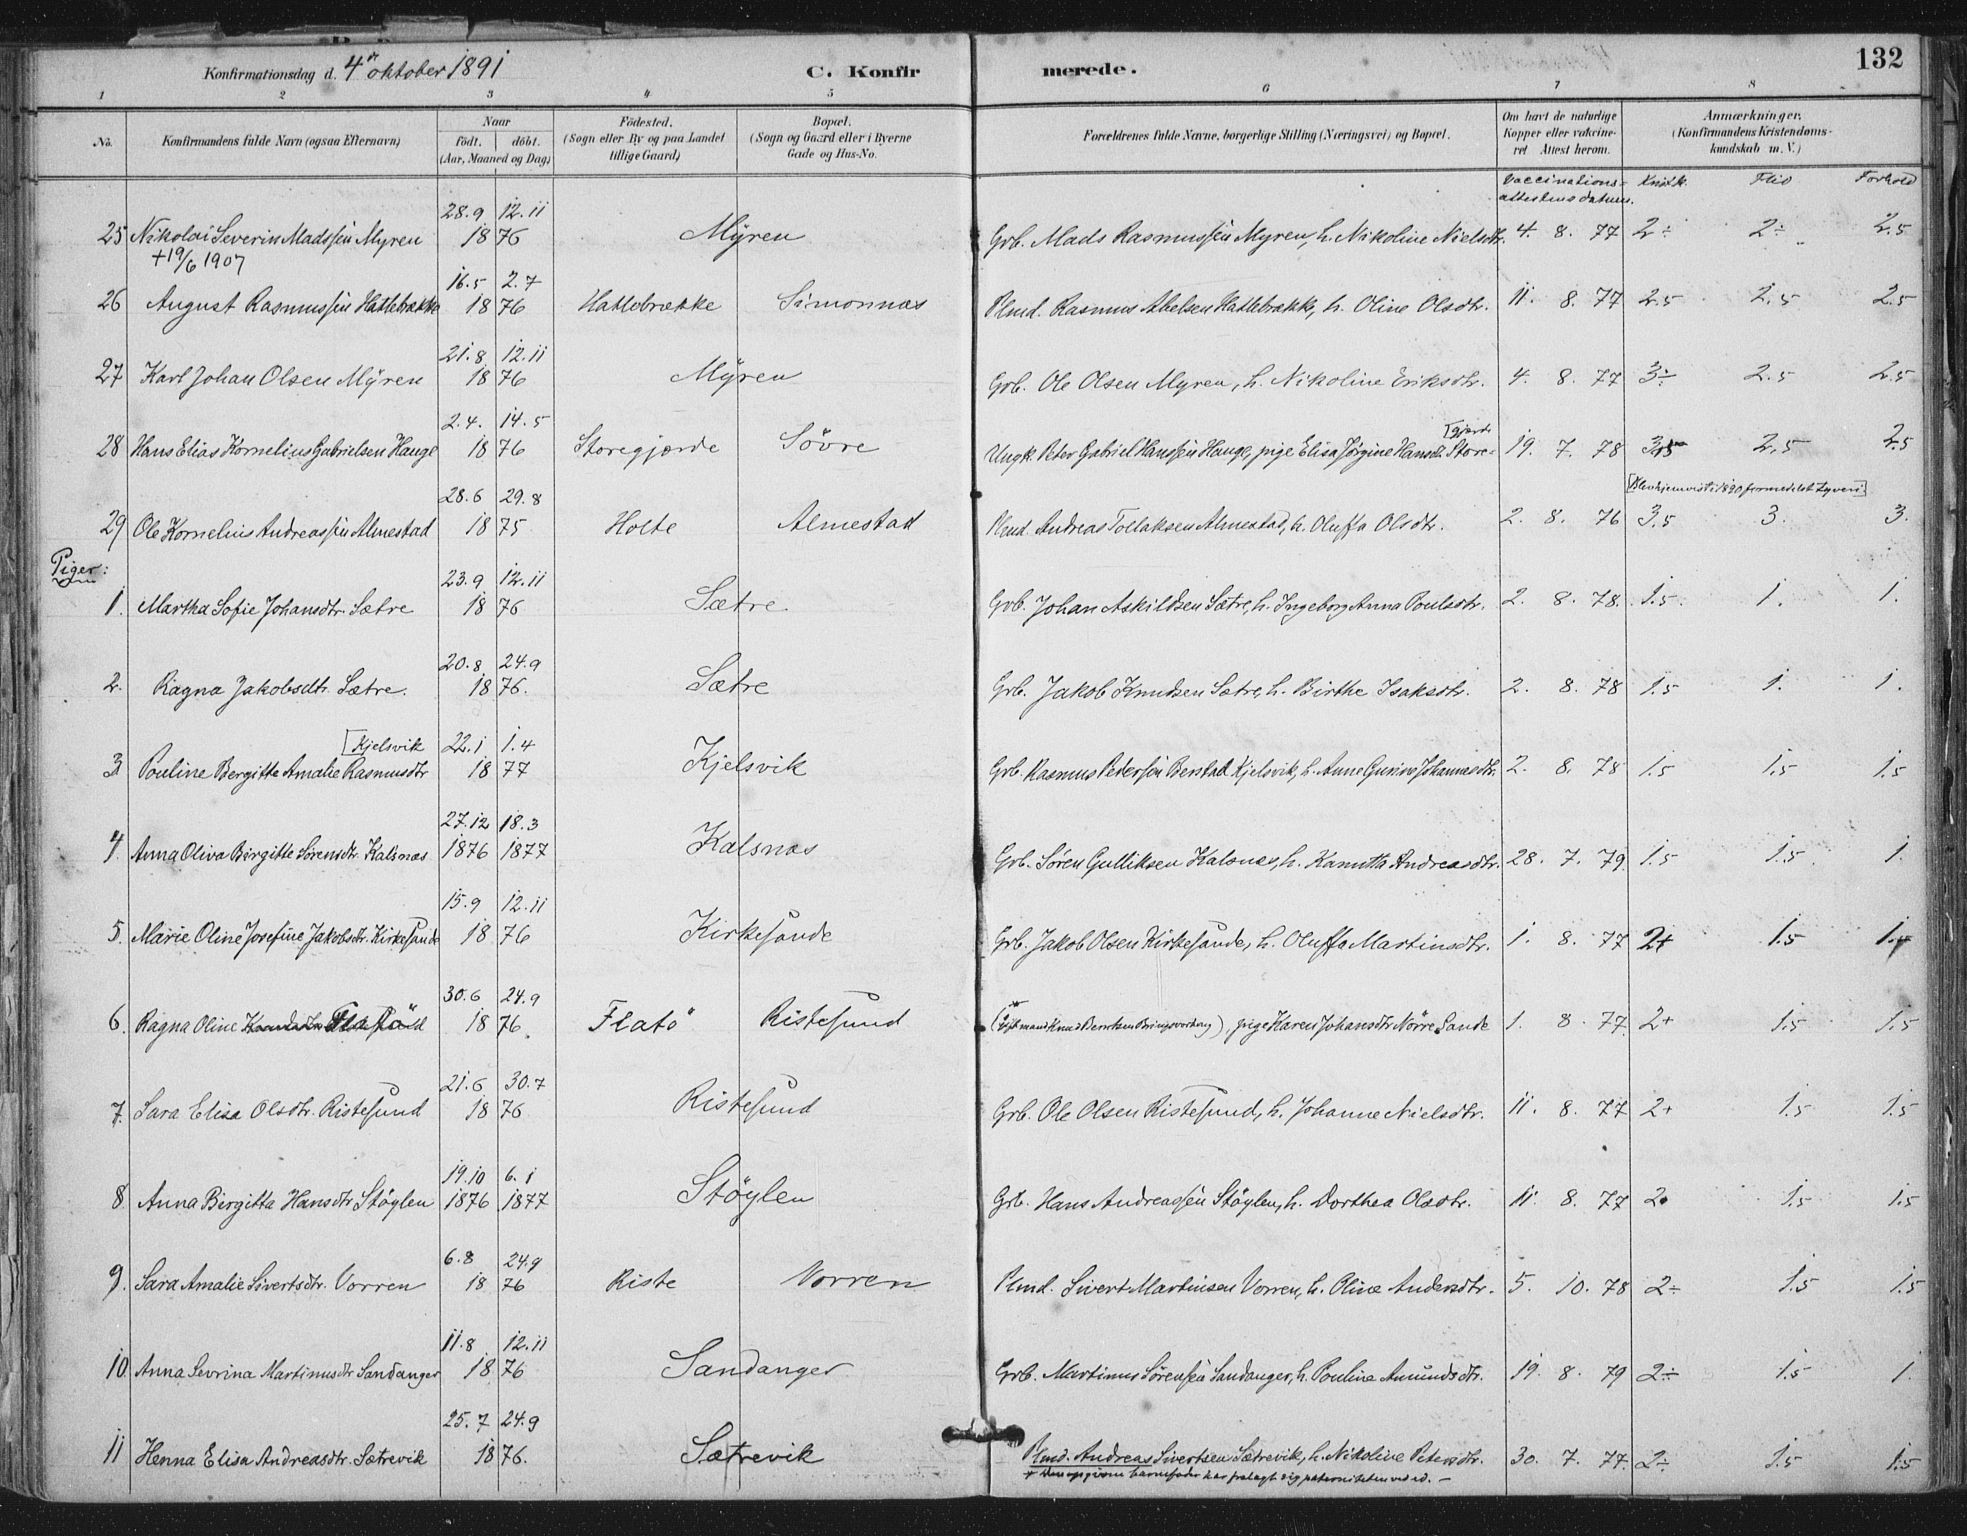 Konfirmationsdag d. 4de oktober 1891 C. Konfirmerede. 132
1 2 3 4 5 6 7 8
No. Konfirmandens fulde Navn (ogsaa Efternavn) Naar födt. döbt. (Aar, Maaned og Dag) Födested. (Sogn eller By og paa Landet tillige Gaard) Bopæl. (Sogn og Gaard eller i Byerne Gade og Hus-No. Forældrenes fulde Navne, borgerlige Stilling (Næringsvei) og Bopæl. Om havt de naturlige Kopper eller vakcineret Attest herom. Anmærkninger, (Konfirmandens Kristendomskundskab m. V.)
Vaccinations-attestens datum. Flid Forhold
28.9 12.11
25 Nikolai Severin Madssen Myren 18 76 Myren Grb. Mads Rasmussen Myren, h. Nikoline Nielsdtr. 4. 8. 77 2÷ 2÷ 2.5
+19/6 1907
16.5 2.7
26 August Rasmussen Hatlebrække 18 76 Hatlebrække Simonnæs Plmd. Rasmus Abelsen Hatlebrække, h. Oline Olsdtr. 11. 8. 77 2.5 2.5 2.5
21.8 12.11
27 Karl Johan Olsen Myren 18 76 Myren Grb. Ole Olsen Myren, h. Nikoline Eriksdtr. 4. 8. 77 3÷ 2.5 2.5
2.4. 14.5
28 Hans Elias Kornelius Gabrielsen Hauge 18 76 Storegjærde Sövre Ungk. Peter Gabriel Hanssen Hauge, pige Elisa Jørgine Hansdtr. Store- [gjærde 19. 7. 78 3.5 2.5 2.5
28.6 29.8 [Blev hjemvist i 1890 formedelst tyveri]
29 Ole Kornelius Andreassen Almestad 18 75 Holte Almestad Plmd. Andreas Tollaksen Almestad, h. Oluffa Olsdtr. 2. 8. 76 3.5 3. 3.
Piger:
23.9 12.11
1. Martha Sofie Johansdtr. Sætre 18 76 Sætre Grb. Johan Askildsen Sætre, h. Ingeborg Anna Poulsdtr. 2. 8. 78. 1.5 1. 1.
20.8 24.9
2. Ragna Jakobsdtr. Sætre. 18 76. Sætre Grb. Jakob Knudsen Sætre, h. Birthe Isaksdtr. 2. 8. 78 1.5 1. 1.
[Kjelsvik 22.1 1.4
3 Pouline Bergitte Amalie Rasmusdtr 18 77 Kjelsvik Grb. Rasmus Pedersen Berstad Kjelsvik, h. Anne Johannesdtr. 2. 8. 78 1.5 1.5 1.5
27.12 18.3
4. Anna Oliva Birgitte Sørensdtr. Kalsnæs 1876 1877 Kalsnæs Grb. Søren Gulliksen Kalsnæs, h. Kanutta Andreasdtr. 28. 7. 79. 1.5 1.5 1.
15.9 12.11
5. Marie Oline Josefine Jakobsdtr. Kirkesande 18 76 Kirkesande Grb. Jakob Olsen Kirkesande, h. Oluffa Martinsdtr. 1. 8. 77 2+ 1.5
30.6 24.9
6. Ragna Oline 18 76. Flatö Ristesund pige Karen Johansdtr Nörre Sande 1. 8. 77. 2+ 1.5 1.5
21.6 30.7
7. Sara Elisa Olsdtr. Ristesund 18 76 Ristesund Grb. Ole Olsen Ristesund, h. Johanne Nielsdtr. 11. 8. 77 2+ 1.5 1.5
19.10 6.1
8 Anna Birgitta Hansdtr. Stöylen 1876 1877 Stöylen Grb. Hans Andreassen Stöylen, h. Dorthea Olsdtr. 11 8. 77 2. 1.5 1.5
6.8 24.9
9. Sara Amalie Sivertsdtr. Vorren 18 76 Riste Vorren Plmd. Sivert Martinsen Vorren, h. Oline Andersdtr. 5. 10. 78 2÷ 1.5 1.5
11.8 12.11
10 Anna Sevrina Martinusdtr Sandanger 18 76 Sandanger Grb. Martinus Sørensen Sandanger, h. Pouline Amundsdtr. 19. 8. 79 2÷ 1.5 1.
25.7 24.9
11 Henna Elisa Andreasdtr. Sætrevik 18 76. Sætrevik Plmd. Andreas Sivertsen Sætrevik, h. Nikoline Petersdtr. 30. 7. 77. 2÷ 1.5 1.5
* Den opgivne barnefader har fralagt sig paterniteten ved ed. —